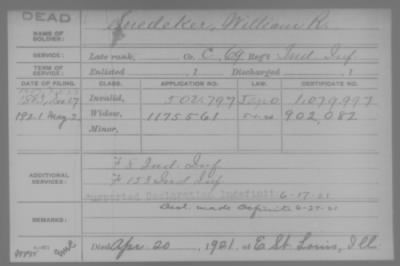 DEAD
NAME OF SOLDIER: Snedeker, William R.
SERVICE: Late rank, Co. C, 69 Reg't Ind. Inf.
TERM OF SERVICE: Enlisted , 1 Discharged , 1
DATE OF FILING. CLASS. APPLICATION NO. LAW. CERTIFICATE NO.
17 Invalid, 797 1,079,997
1921, May 2 Widow, 1175561 902,082
Minor,
ADDITIONAL SERVICES: F 8 Ind. Inf
F 153 Ind Inf
Declaration 6-17-21
made 6-27-21
REMARKS:
Died Apr. 20, 1921, at E St Louis, Ill.